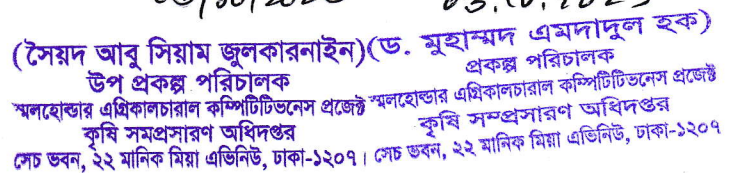 03.10.2023
(সৈয়দ আবু সিয়াম জুলকারনাইন)
উপ প্রকল্প পরিচালক
স্মলহোল্ডার এগ্রিকালচারাল কম্পিটিটিভনেস প্রজেক্ট
কৃষি সমপ্রসারণ অধিদপ্তর
সেচ ভবন, ২২ মানিক মিয়া এভিনিউ, ঢাকা-১২০৭।
(ড. মুহাম্মদ এমদাদুল হক)
প্রকল্প পরিচালক
স্মলহোল্ডার এগ্রিকালচারাল কম্পিটিটিভনেস প্রজেক্ট
কৃষি সম্প্রসারণ অধিদপ্তর
সেচ ভবন, ২২ মানিক মিয়া এভিনিউ, ঢাকা-১২০৭